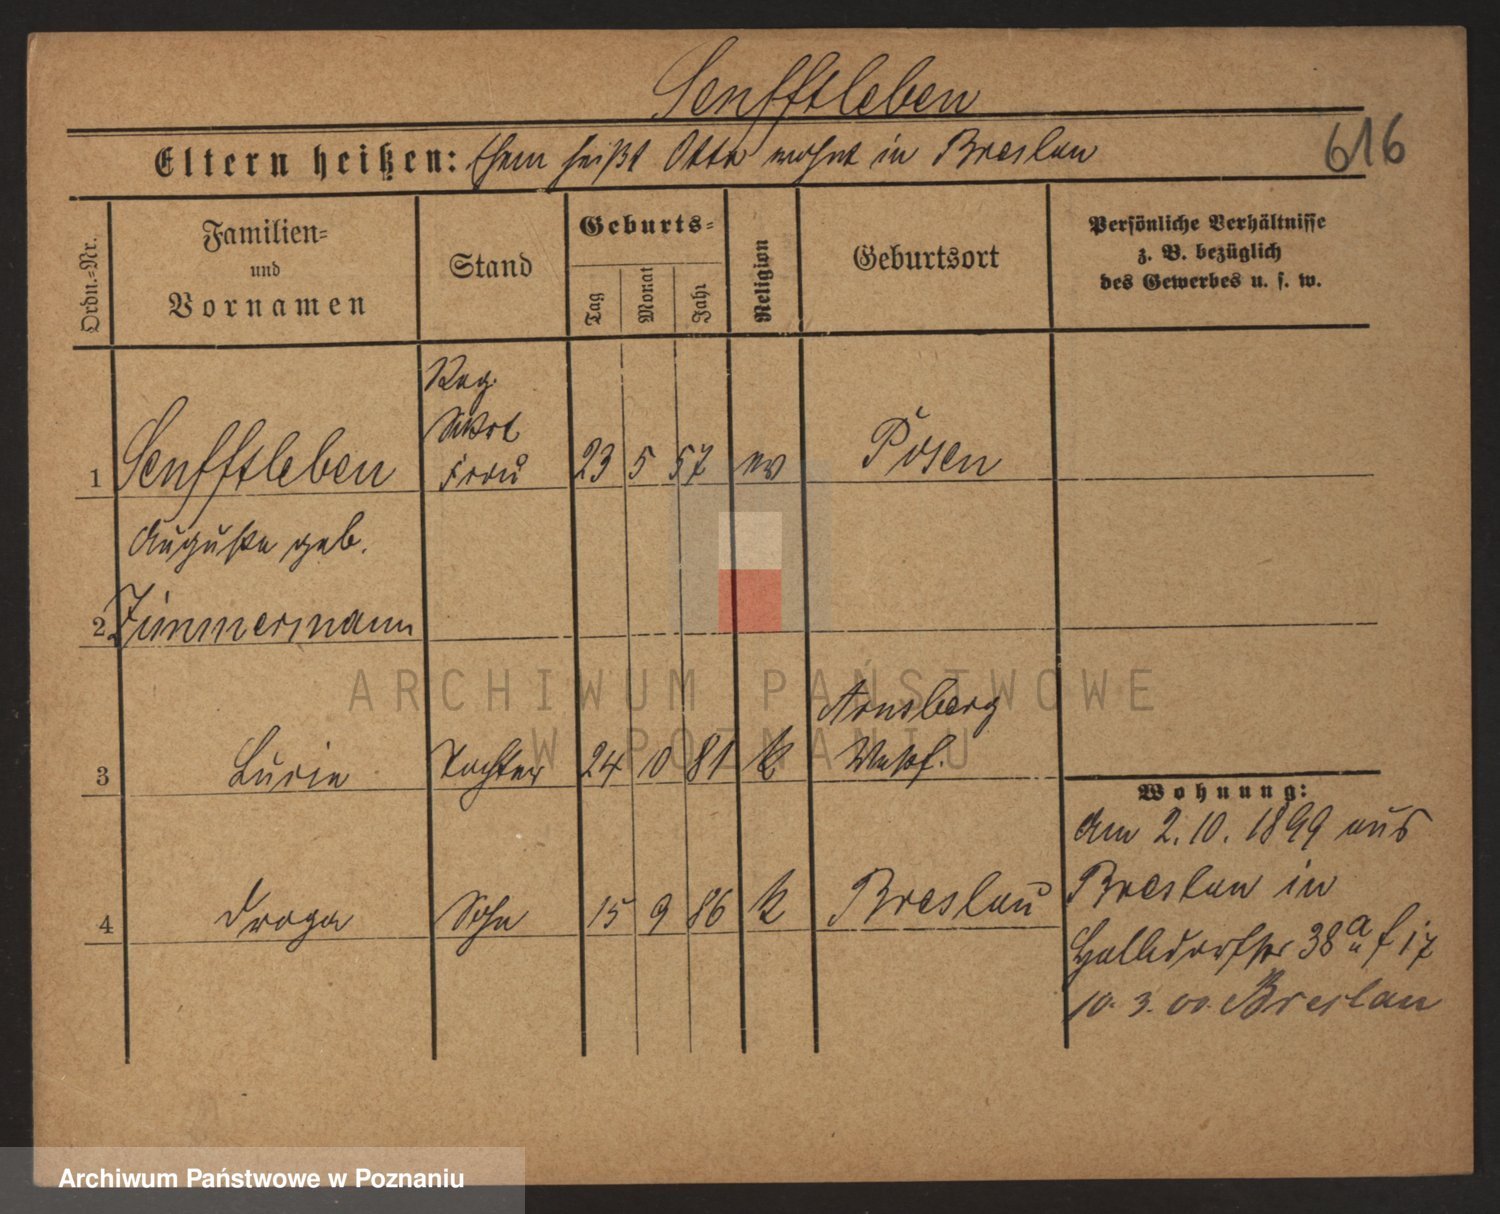 Senfftleben
Eltern heißen: Ehem heißt Otto wohnt in Breslau
616
Ordn.-Nr.
Familien-
und
Vornamen
Stand
Geburts-
Tag
Monat
Jahr
Religion
Geburtsort
Persönliche Verhältnisse
z. B. bezüglich
des Gewerbes u. s. w.
Reg.
Sekrt
1 Senfftleben Frau 23 5 57 ev Posen
Auguste geb.
2 Zimmermann
Arnsberg
3 Lucie Tochter 24 0 81 k Westf.
Wohnung:
Am 2. 10. 1899 aus
4 Sohn 15 9 86 k Breslau
Breslau in
38a
10. 3. 00. Breslau
ARCHIWUM PAŃSTWOWE
W POZNANIU
Archiwum Państwowe w Poznaniu